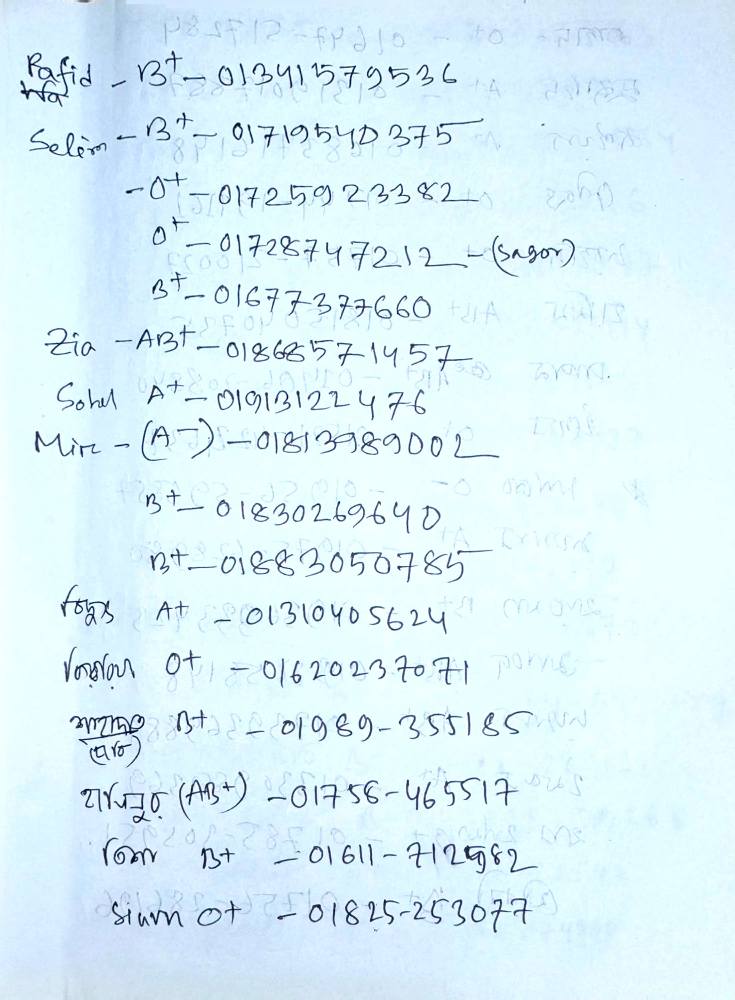 Rafid - B+ - 01341579536
Selim - B+ - 01719540375
- O+ - 01725923382
O+ - 01728747212 - (Sagor)
B+ - 01677377660
Zia - AB+ - 01868571457
Sohel A+ - 01913122476
Mir - (A-) - 01813989002
B+ - 01830269640
B+ - 01883050785
A+ - 01310405624
O+ - 01620237071
B+ - 01989-355185
(AB+) - 01756-465517
B+ - 01611-712982
Siam O+ - 01825-253077